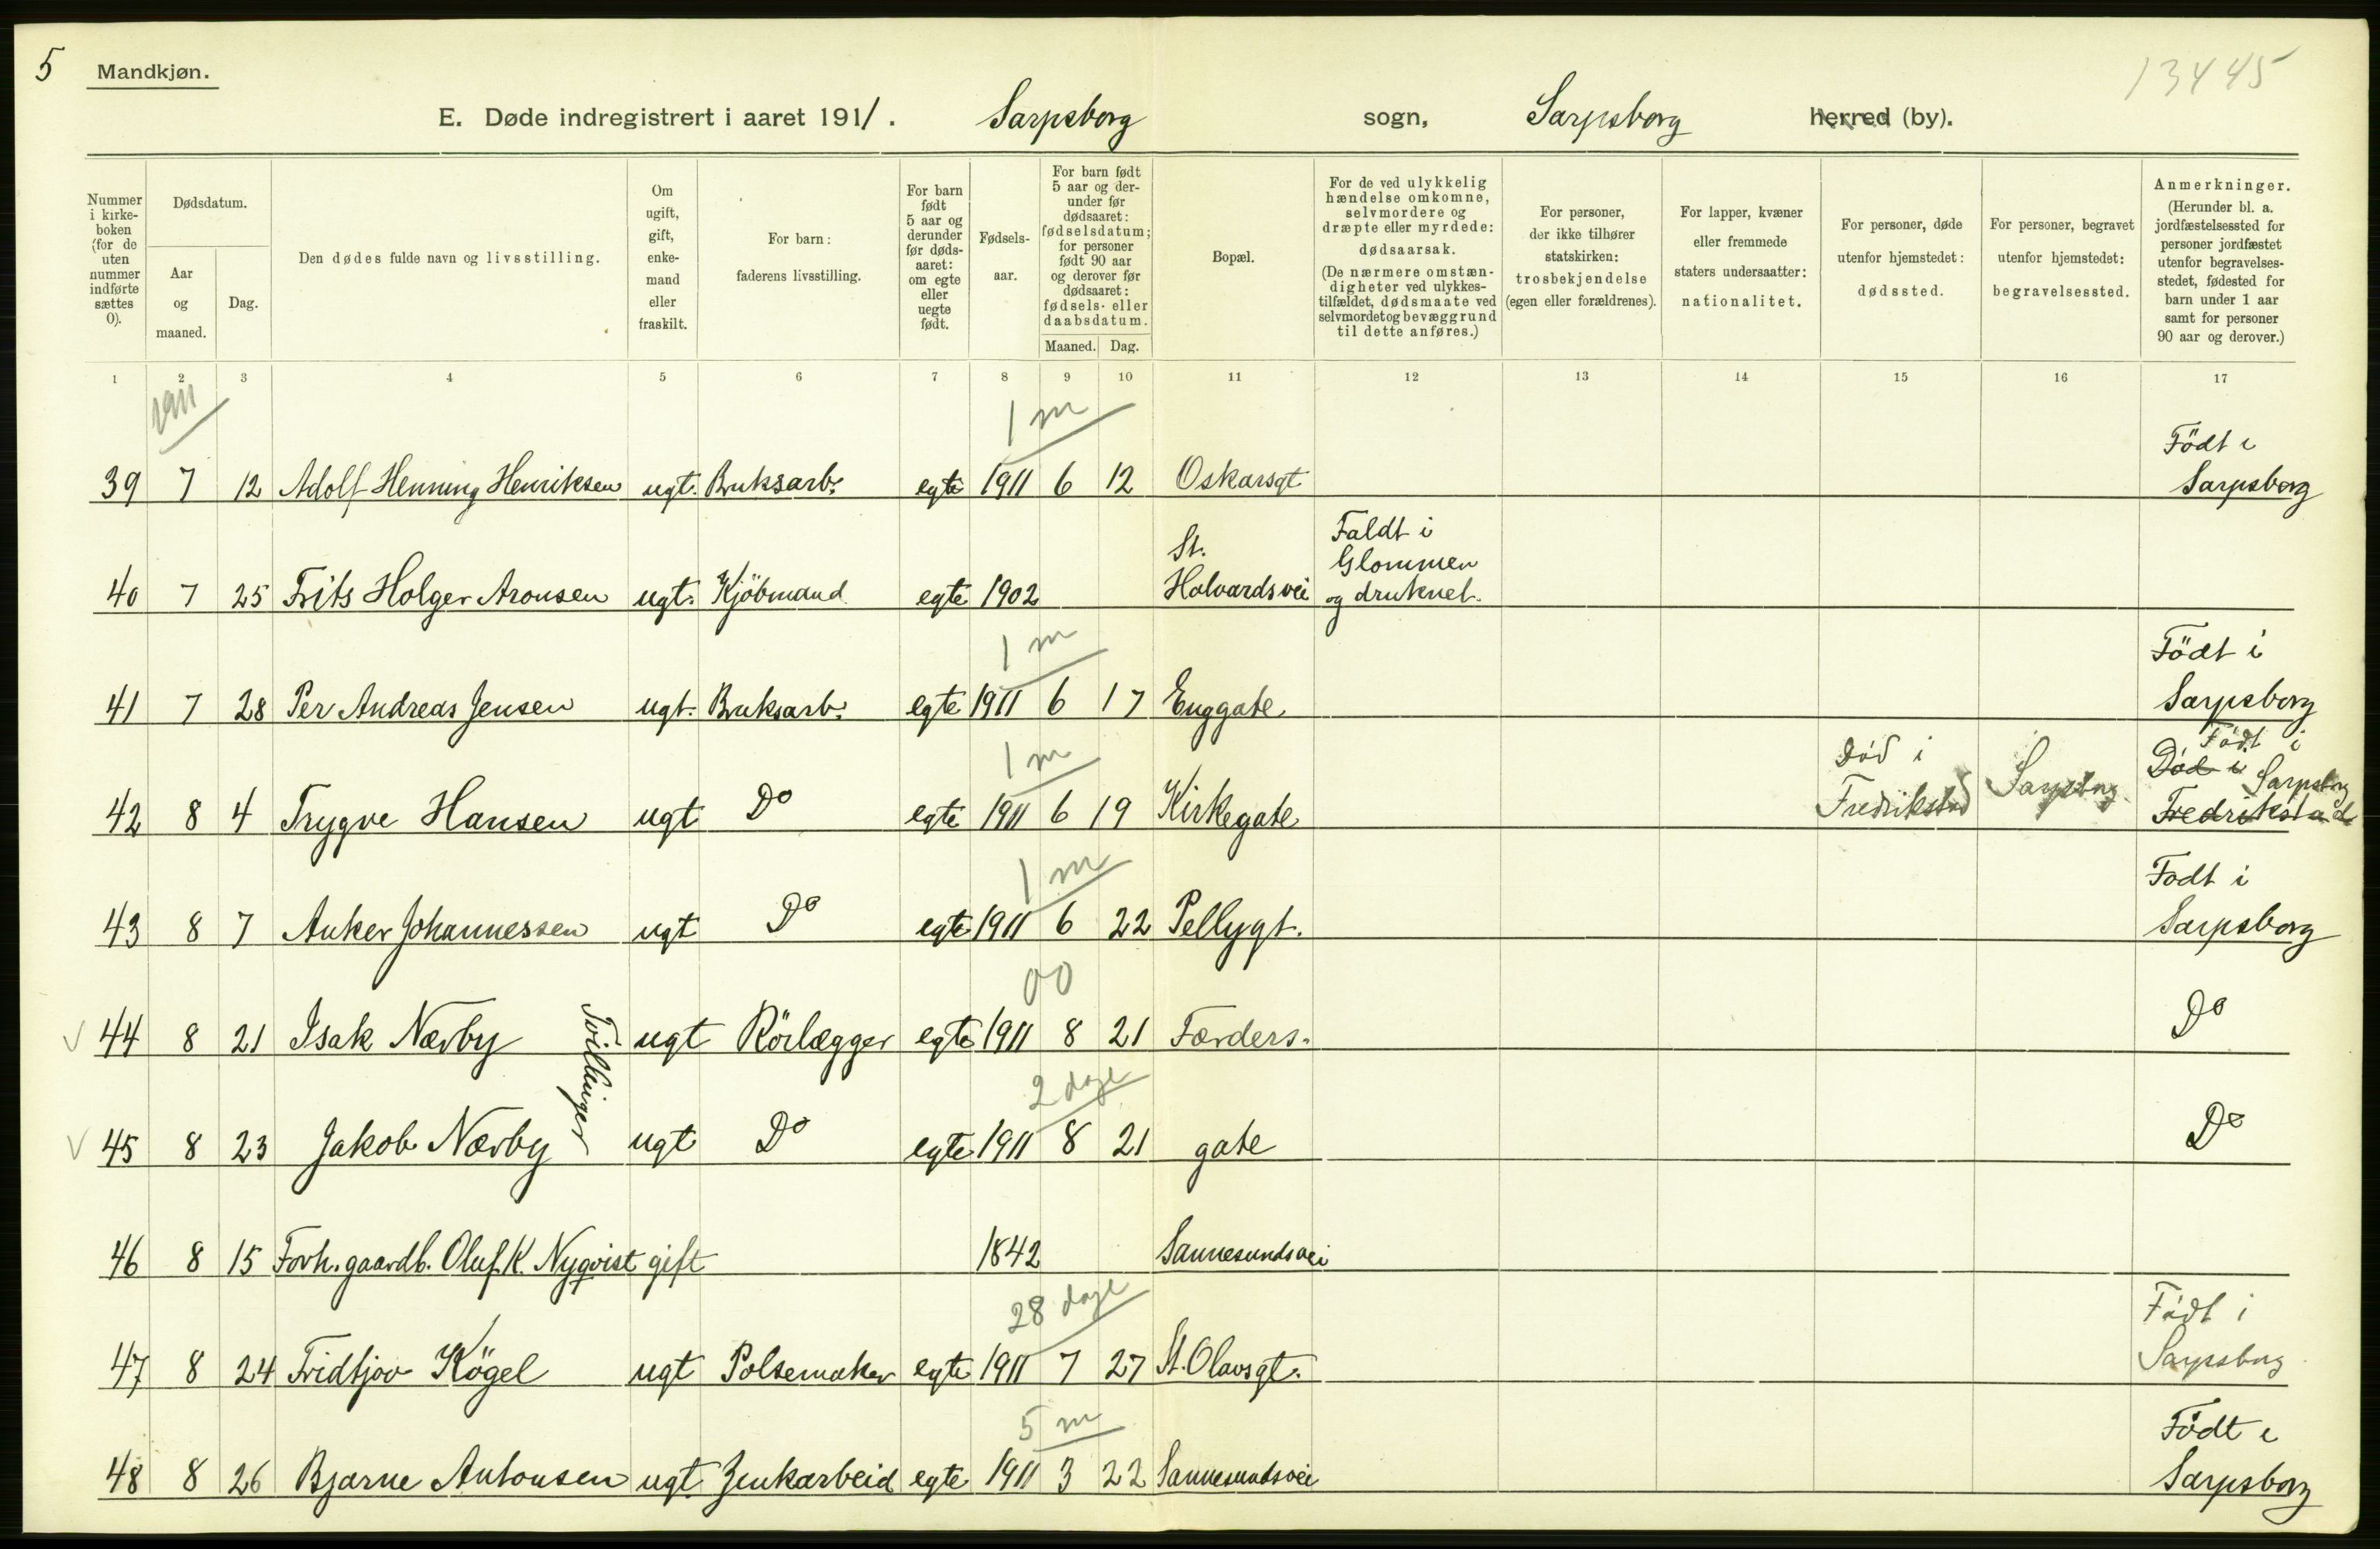 5 Mandkjøn. 13445
E. Døde indregistrert i aaret 1911. Sarpsborg sogn, Sarpsborg herred (by).
Nummer i kirke-boken (for de uten nummer indførte sættes 0).
Dødsdatum.
Aar og maaned.
Dag.
Den dødes fulde navn og livsstilling.
Om ugift, gift, enke-mand eller fraskilt.
For barn: faderens livsstilling.
For barn født 5 aar og derunder før døds-aaret: om egte eller uegte født.
Fødsels-aar.
For barn født 5 aar og der-under før dødsaaret: fødselsdatum; for personer født 90 aar og derover før dødsaaret: fødsels- eller daabsdatum.
Maaned. Dag.
Bopæl.
For de ved ulykkelig hændelse omkomne, selvmordere og dræpte eller myrdede: dødsaarsak. (De nærmere omstæn-digheter ved ulykkes-tilfældet, dødsmaate ved selvmordet og bevæggrund til dette anføres.)
For personer, der ikke tilhører statskirken: trosbekjendelse (egen eller forældrenes).
For lapper, kvæner eller fremmede staters undersaatter: nationalitet.
For personer, døde utenfor hjemstedet: dødssted.
For personer, begravet utenfor hjemstedet: begravelsessted.
Anmerkninger. (Herunder bl. a. jordfæstelsessted for personer jordfæstet utenfor begravelses-stedet, fødested for barn under 1 aar samt for personer 90 aar og derover.)
1 2 3 4 5 6 7 8 9 10 11 12 13 14 15 16 17
1911
1 m
39 7 12 Adolf Henning Henriksen ugt. Bruksarb. egte 1911 6 12 Oskarsgt Födt i Sarpsborg
40 7 25 Frits Holger Aronsen ugt. Kjöbmand egte 1902 St. Halvardsvei Faldt i Glommen og druknet.
1 m
41 7 28 Per Andreas Jensen ugt. Bruksarb. egte 1911 6 17 Enggate Födt i Sarpsborg
1 m
42 8 4 Trygve Hansen ugt Do egte 1911 6 19 Kirkegate Död i Fredrikstad Sarpsborg Död i Fredrikstad Födt i Sarpsborg
1 m
43 8 7 Anker Johannessen ugt Do egte 1911 6 22 Pellygt. Födt i Sarpsborg
00
V 44 8 21 Isak Nærby Tvillinger ugt Rörlægger egte 1911 8 21 Færders- Do
2 dage
V 45 8 23 Jakob Nærby ugt Do egte 1911 8 21 gate Do
46 8 15 Forh. gaardb. Oluf K. Nyqvist gift 1842 Sannesundsvei
28 dage
47 8 24 Fridtjov Kögel ugt Polsemaker egte 1911 7 27 St. Olavsgt. Födt i Sarpsborg
5 m
48 8 26 Bjarne Antonsen ugt Zinkarbeid egte 1911 3 22 Sannesundsvei Födt i Sarpsborg